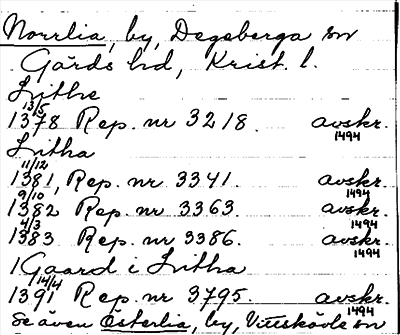 Norrlia, by, Degeberga sn
Gärds hd, Krist. l.
Lithe
13/5
1378 Rep. nr 3218. avskr. 1494
Litha
11/12
1381, Rep. nr 3341. avskr. 1494
9/10
1382 Rep. nr 3363. avskr. 1494
4/3
1383 Rep. nr 3386. avskr. 1494
1 Gaard i Litha
14/4
1391 Rep. nr 3795. avskr. 1494
Se även Österlia, by, Vittskövle sn